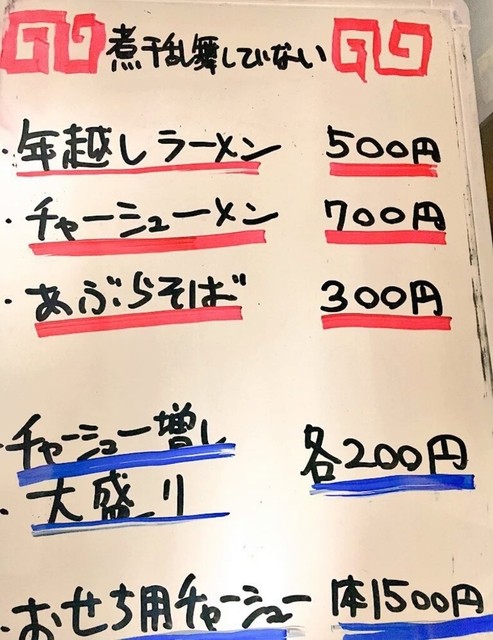 煮干乱舞していない
・年越しラーメン 500円
・チャーシューメン 700円
・あぶらそば 300円
・チャーシュー増し
各200円
・大盛り
・おせち用チャーシュー 1体1500円